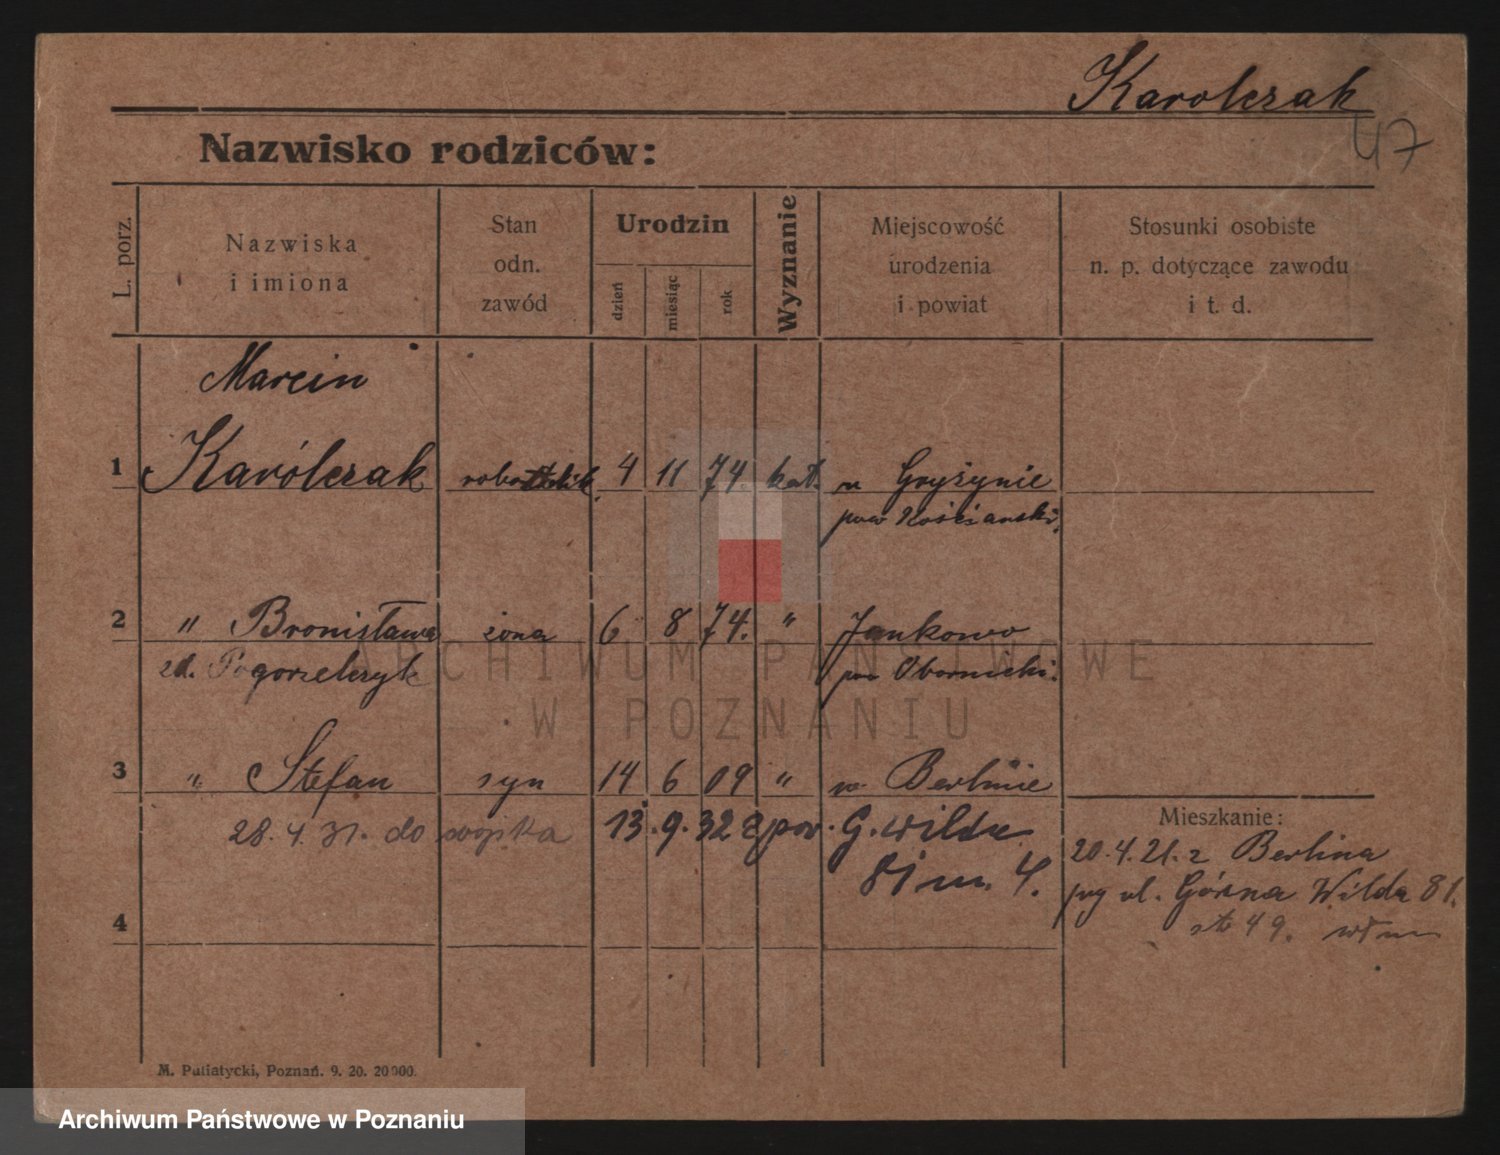 Karolczak
47
Nazwisko rodziców:
L. porz.
Nazwiska
i imiona
Stan
odn.
zawód
Urodzin
dzień
miesiąc
rok
Wyznanie
Miejscowość
urodzenia
i powiat
Stosunki osobiste
n. p. dotyczące zawodu
i t. d.
Marcin
1 Karólczak robotnik 4 11 74. kat. w Gryżynie
pow Kościański.
2 " Bronisława żona 6 8 74. " Jankowo
zd. Pogorzelczyk po Obornicki.
3 " Stefan syn 14 6 09 " w Berlinie
28.4.31. do wojska 13.9.32 z pow. G. Wilda
81 m. 4.
Mieszkanie:
20.4.21. z Berlina
ul. Górna Wilda 81.
49.
4
ARCHIWUM PAŃSTWOWE
W POZNANIU
M. Putiatycki, Poznań. 9. 20. 20000.
Archiwum Państwowe w Poznaniu